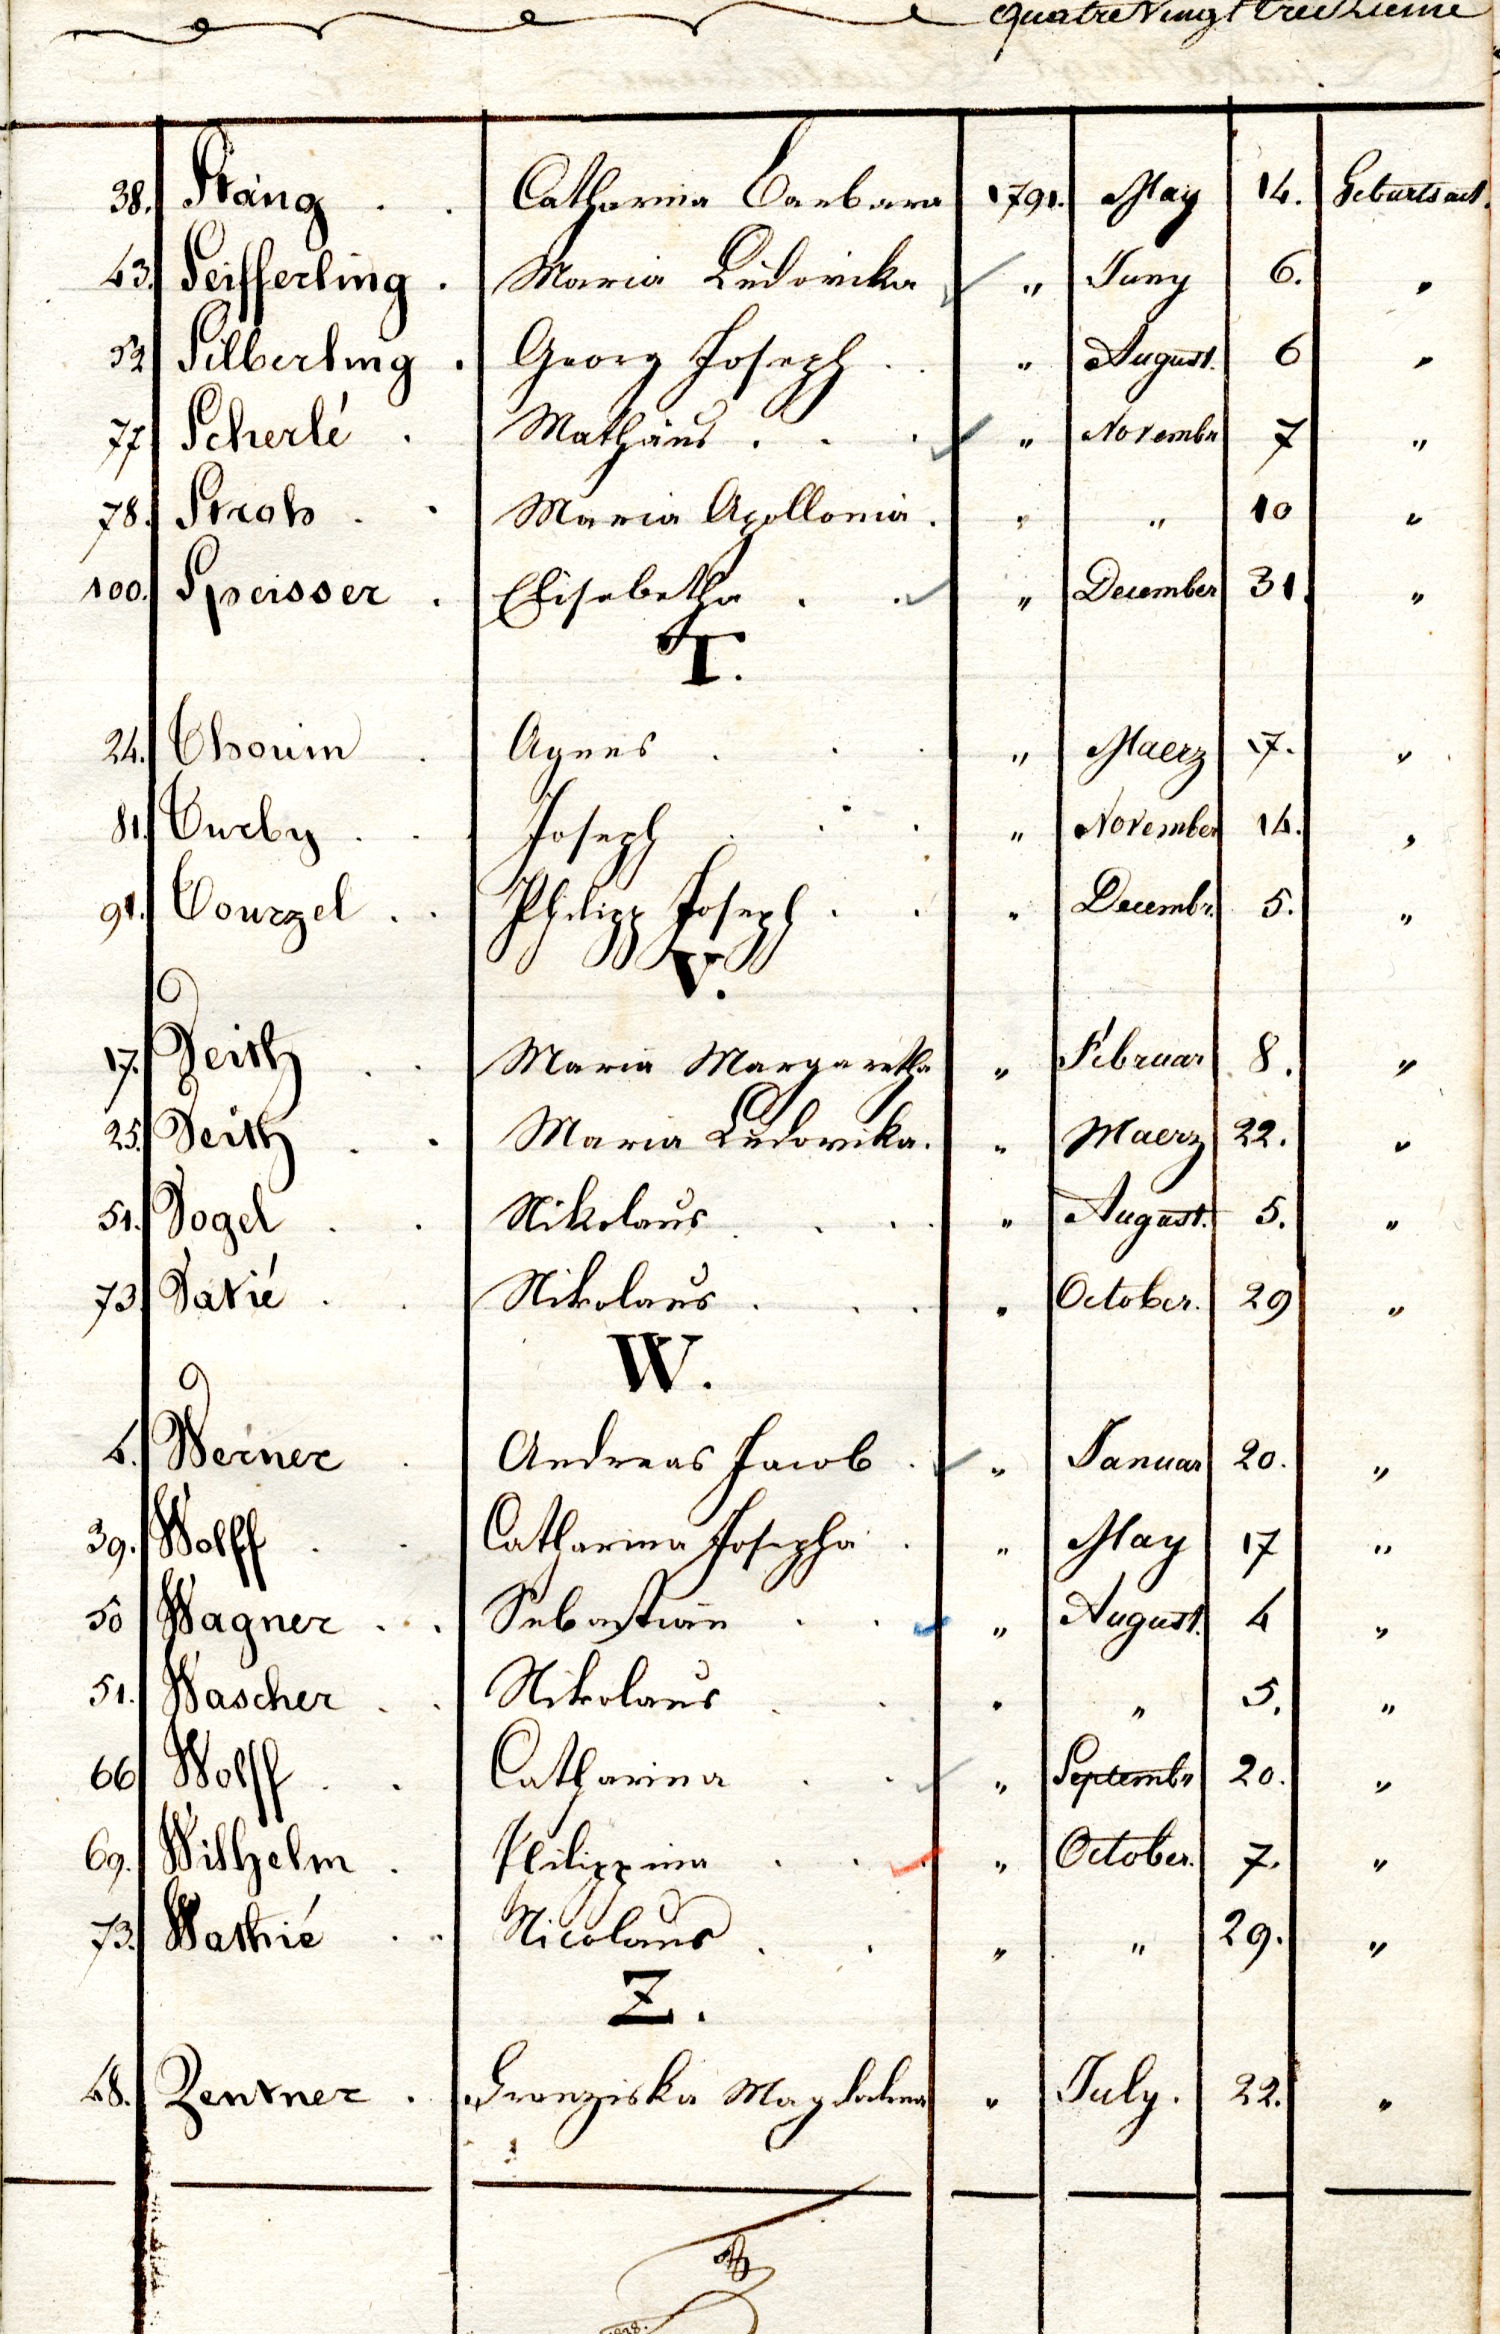 quatre Vingt treizieme
38. Stang . . Catharina Barbara 1791. May 14. Geburtsact.
43. Seifferling . Maria Ludovika " Juny 6. "
52 Silberling . Georg Joseph . . " August. 6 "
77 Scherlé . Mathäus . . . " Novembr 7 "
78. Stroh . . Maria Apollonia . " " 10 "
100. Speisser . Elisabetha . . " December 31. "
T.
24. Thouin . Agnes . . . " Maerz 17. "
81. Turby . . Joseph . . . " November 14. "
91. Tourzel . . Philipp Joseph . . " Decembr. 5. "
V.
17. Veith . . Maria Margaretha " Februar 8. "
25. Veith . . Maria Ludovika. " Maerz 22. "
51. Vogel . . Nikolaus . . . " August. 5. "
73. Vatié . . Nikolaus . . . " October. 29 "
W.
4. Werner . Andreas Jacob . " Januar 20. "
39. Wolff . . Catharina Josepha . " May 17 "
50 Wagner . . Sebastian . . " August. 4 "
51. Wascher . . Nikolaus . . " " 5. "
66 Wolff . . Catharina . . " Septembr 20. "
69. Wilhelm . Philippina . . " October. 7. "
73. Wathié . . Nicolaus . . " " 29. "
Z.
48. Zentner . Franziska Magdalena " July. 22. "